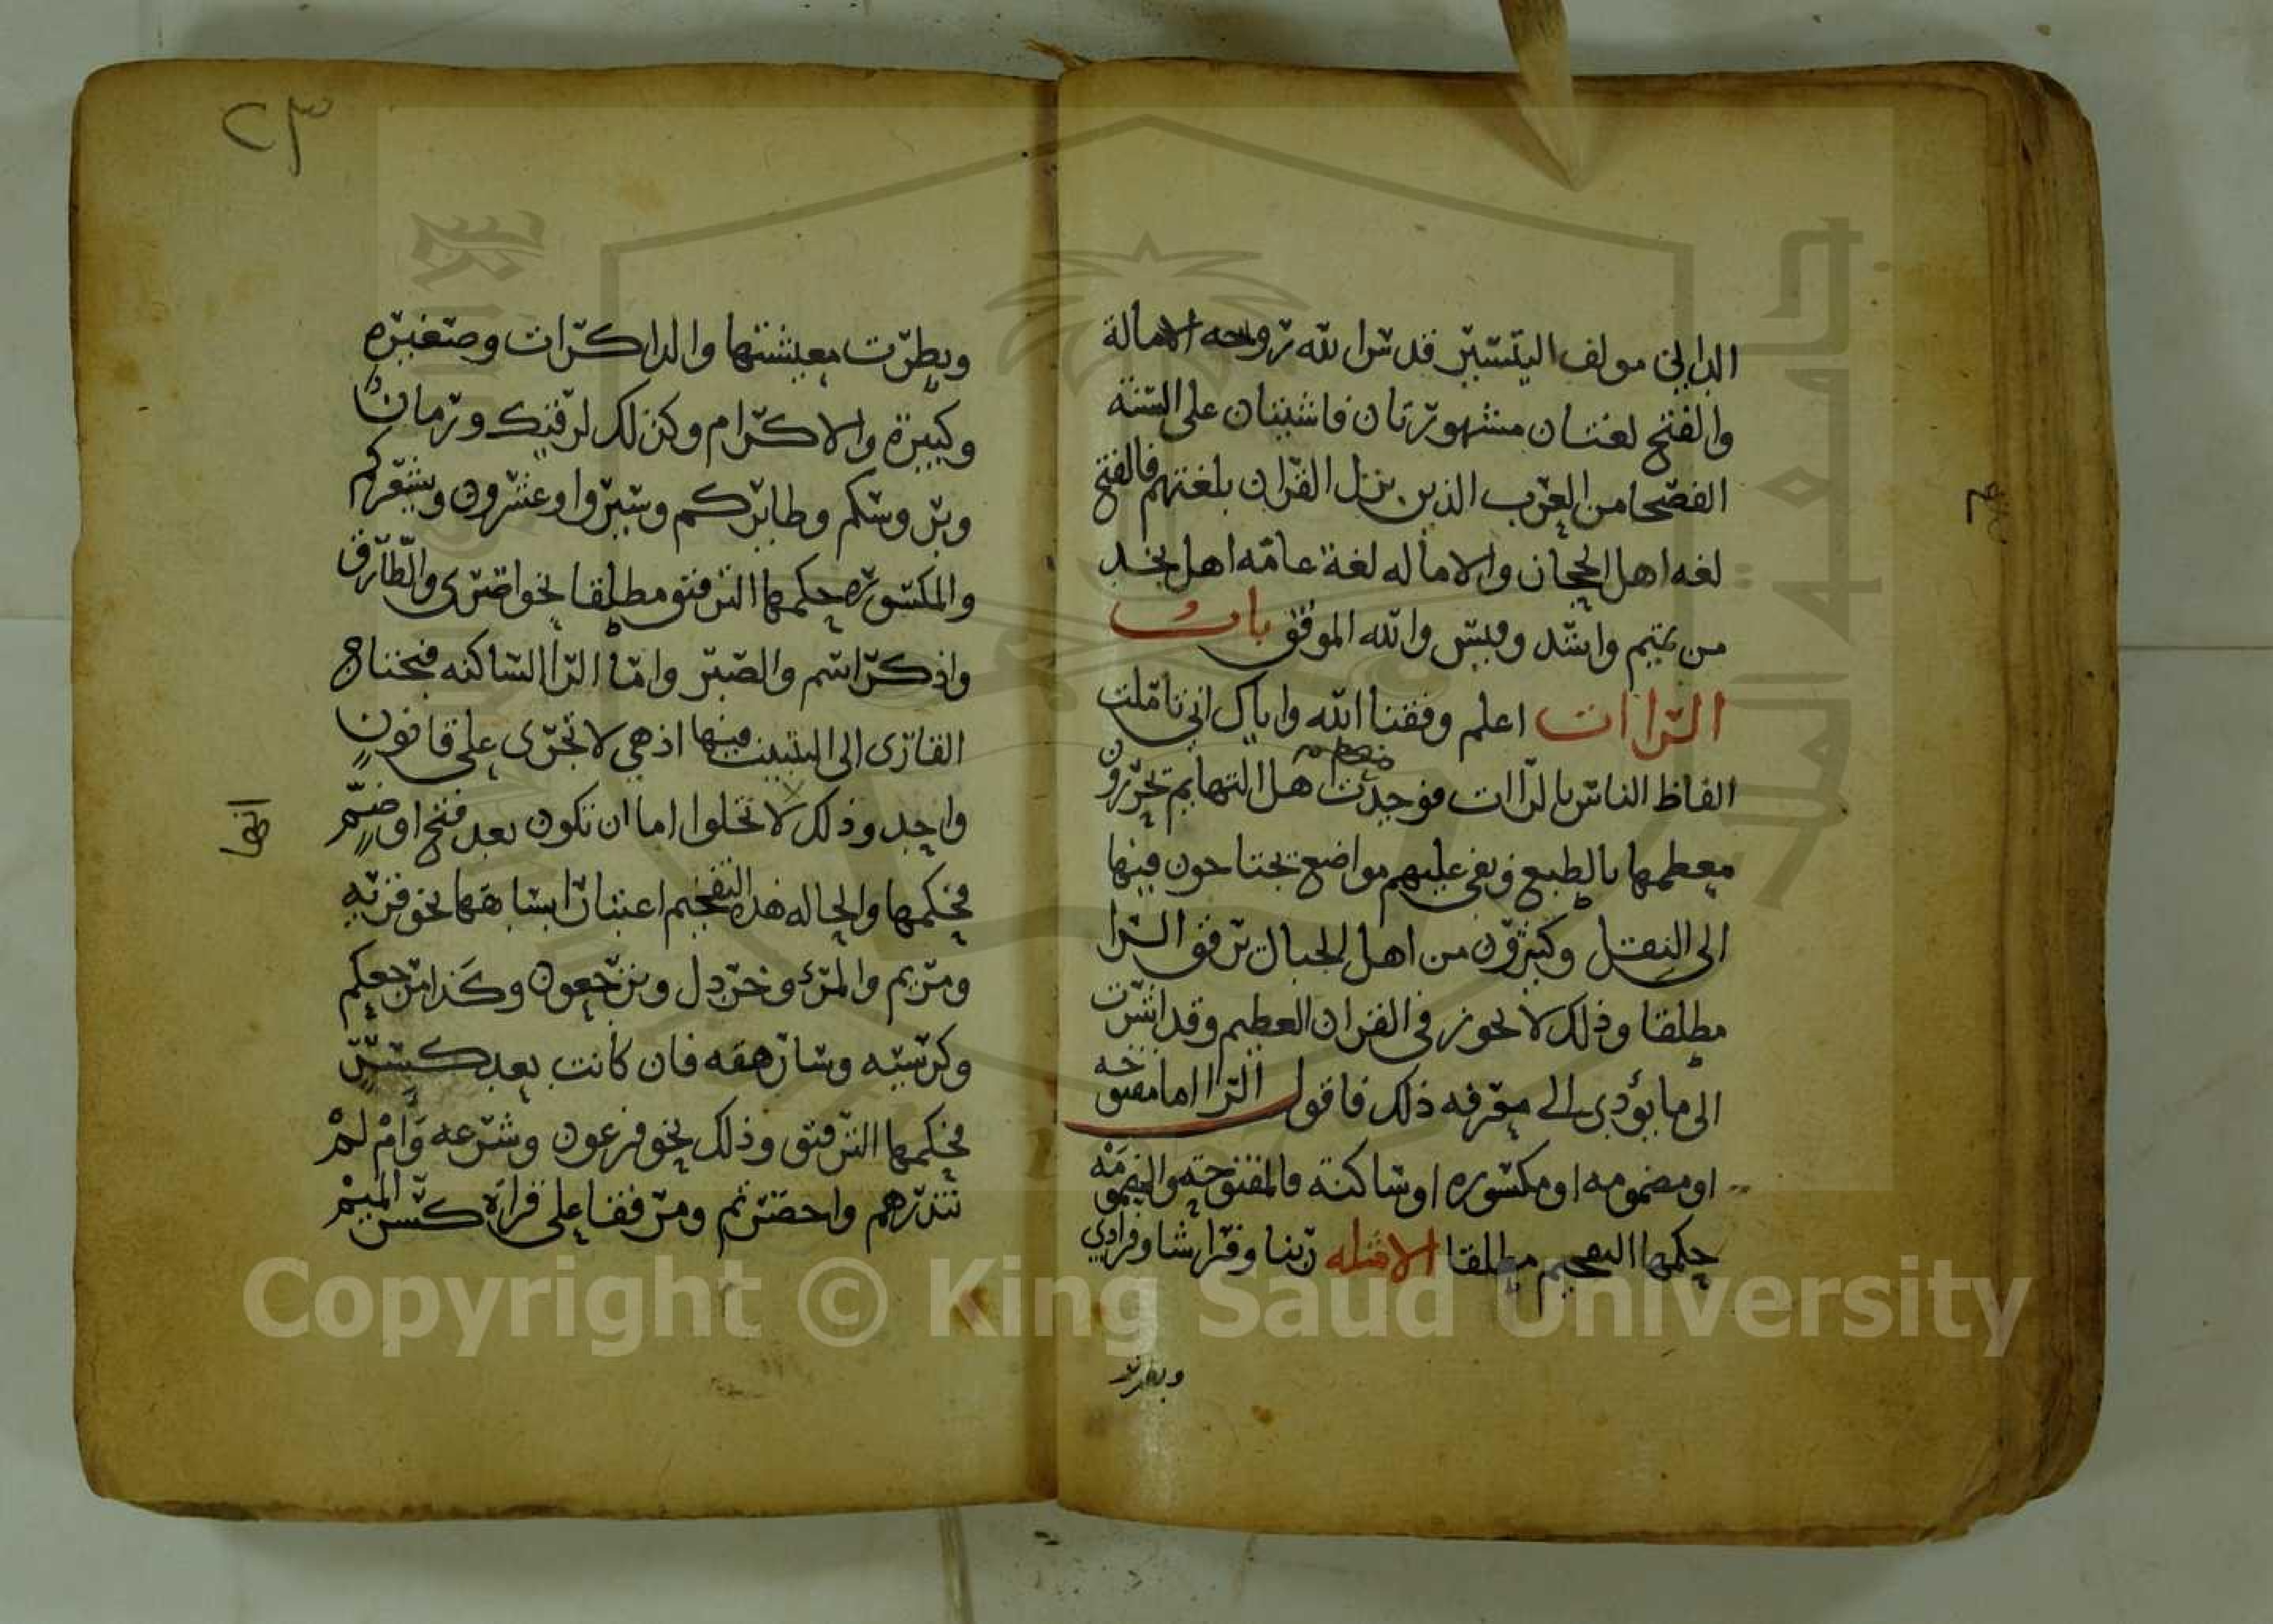 الداني مولف التيسير قدس الله روحه الامالة
والفتح لغتان مشهورتان فاشيتان على السنة
الفصحا من العرب الذين نزل القران بلغتهم فالفتح
لغه اهل الحجاز والاماله لغة عامه اهل نجد
من تميم واسد وقيس والله الموفق باب
الراات اعلم وفقنا الله واياك اني تاملت
الفاظ الناس بالراات فوجدت هل التهايم تحررون
معظمها بالطبع وبقي عليهم مواضع يحتاجون فيها
الى النقل وكثيرون من اهل الجبال ترقق الرا
مطلقا وذلك لا يجوز في القران العظيم وقد اشرت
الى ما يؤدي الى معرفه ذلك فاقول الرا اما مفتوحه
او مضمومه او مكسوره او ساكنة فالمفتوحه والمضمومه
حكمها التفخيم مطلقا الامثله ربنا وفراشا وفرادي
وبطرت
٢٣
وبطرت معيشتها والذاكرات وصغيره
وكبيرة والاكرام وكذلك لرقيك ورمان
وبروسكم وطايركم وسيروا وعشرون ويشعركم
والمكسوره حكمها الترقيق مطلقا نحو اضري والطارق
واذكر اسم والصبر واما الرا الساكنه فيحتاج
القارى الى التبيين فيها اذ هي لا تجرى على قانون
واحد وذلك لا تخلوا اما ان تكون بعد فتح او ضم
فحكمها والحاله هذه التفخيم اعتبارا بسابقها نحو قريه
ومريم والمرء وخردل ويرجعون وكذا مرجعكم
وكرسيه وسارهقه فان كانت بعد كسر
فحكمها الترقيق وذلك نحو فرعون وشرعه وام لم
تنذرهم واحصرتم ومرفقا على قراة كسر الميم